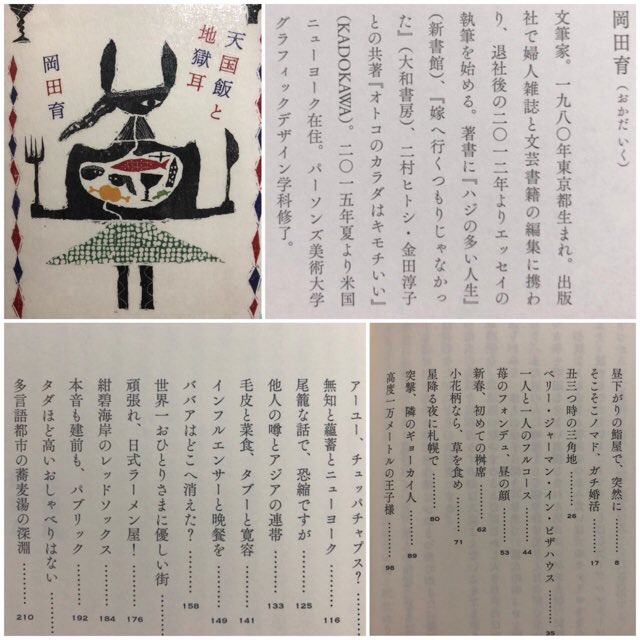 天国飯と
地獄耳
岡田育
岡田育(おかだ いく)
文筆家。一九八〇年東京都生まれ。出版
社で婦人雑誌と文芸書籍の編集に携わ
り、退社後の二〇一二年よりエッセイの
執筆を始める。著書に『ハジの多い人生』
(新書館)、『嫁へ行くつもりじゃなかっ
た』(大和書房)、二村ヒトシ・金田淳子
との共著『オトコのカラダはキモチいい』
(KADOKAWA)。二〇一五年夏より米国
ニューヨーク在住。パーソンズ美術大学
グラフィックデザイン学科修了。
アーユー、チュッパチャプス?……
無知と蘊蓄とニューヨーク……116
尾籠な話で、恐縮ですが……125
他人の噂とアジアの連帯……133
毛皮と菜食、タブーと寛容……141
インフルエンサーと晩餐を……149
ババアはどこへ消えた?……158
世界一おひとりさまに優しい街……
頑張れ、日式ラーメン屋!……176
紺碧海岸のレッドソックス……184
本音も建前も、パブリック……192
タダほど高いおしゃべりはない
多言語都市の蕎麦湯の深淵……210
昼下がりの鮨屋で、突然に……8
そこそこノマド、ガチ婚活……17
丑三つ時の三角地……26
ベリー・ジャーマン・イン・ピザハウス……35
一人と一人のフルコース……44
苺のフォンデュ、昼の顔……53
新春、初めての桝席……62
小花柄なら、草を食め……71
星降る夜に札幌で……80
突撃、隣のギョーカイ人……89
高度一万メートルの王子様……98